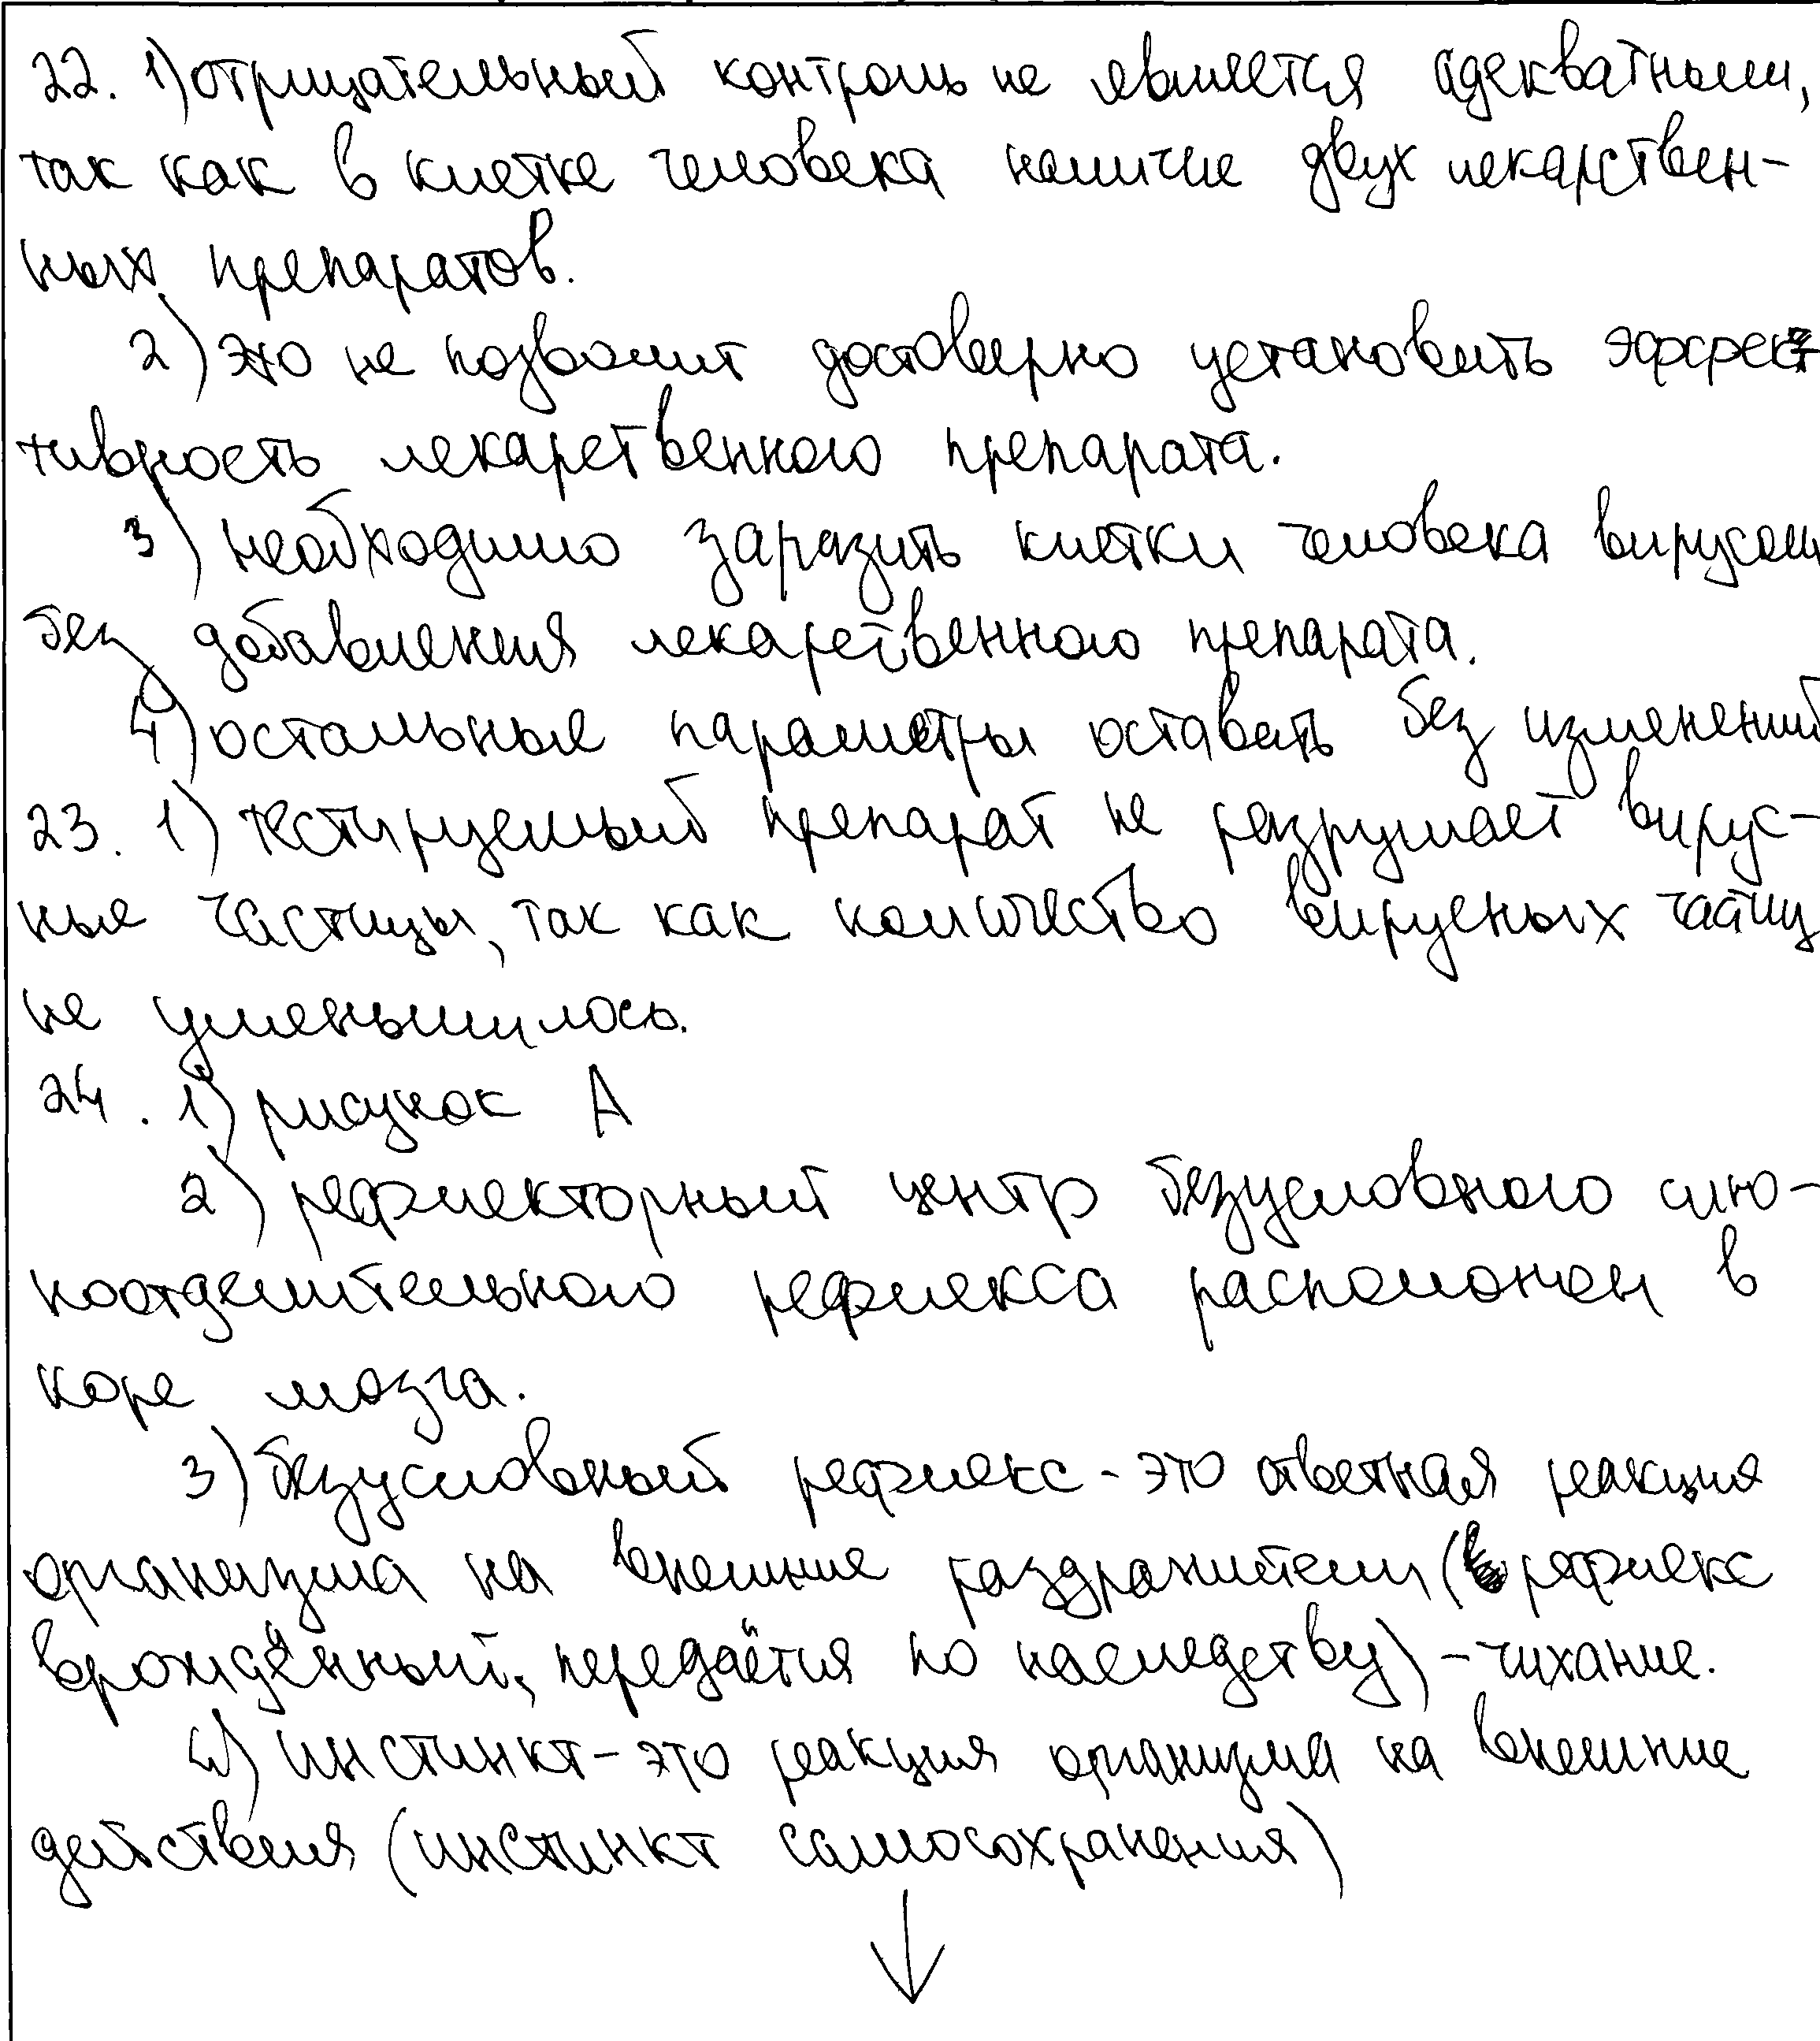 22. 1) отрицательный контроль не является адекватным,
так как в клетке человека наличие двух лекарствен-
ных препаратов.
2) это не позволит достоверно установить эффек
тивность лекарственного препарата.
3) необходимо заразить клетки человека вирусом
без добавления лекарственного препарата.
4) остальные параметры оставить без изменений
23. 1) тестируемый препарат не разрушает вирус-
ные частицы, так как количество вирусных частиц
не уменьшилось.
24. 1) рисунок А
2) рефлекторный центр безусловного слю-
ноотделительного рефлекса расположен в
коре мозга.
3) безусловный рефлекс - это ответная реакция
организма на внешние раздражители (рефлекс
врождённый, передаётся по наследству) - чихание.
4) инстинкт - это реакция организма на внешние
действия (инстинкт самосохранения)